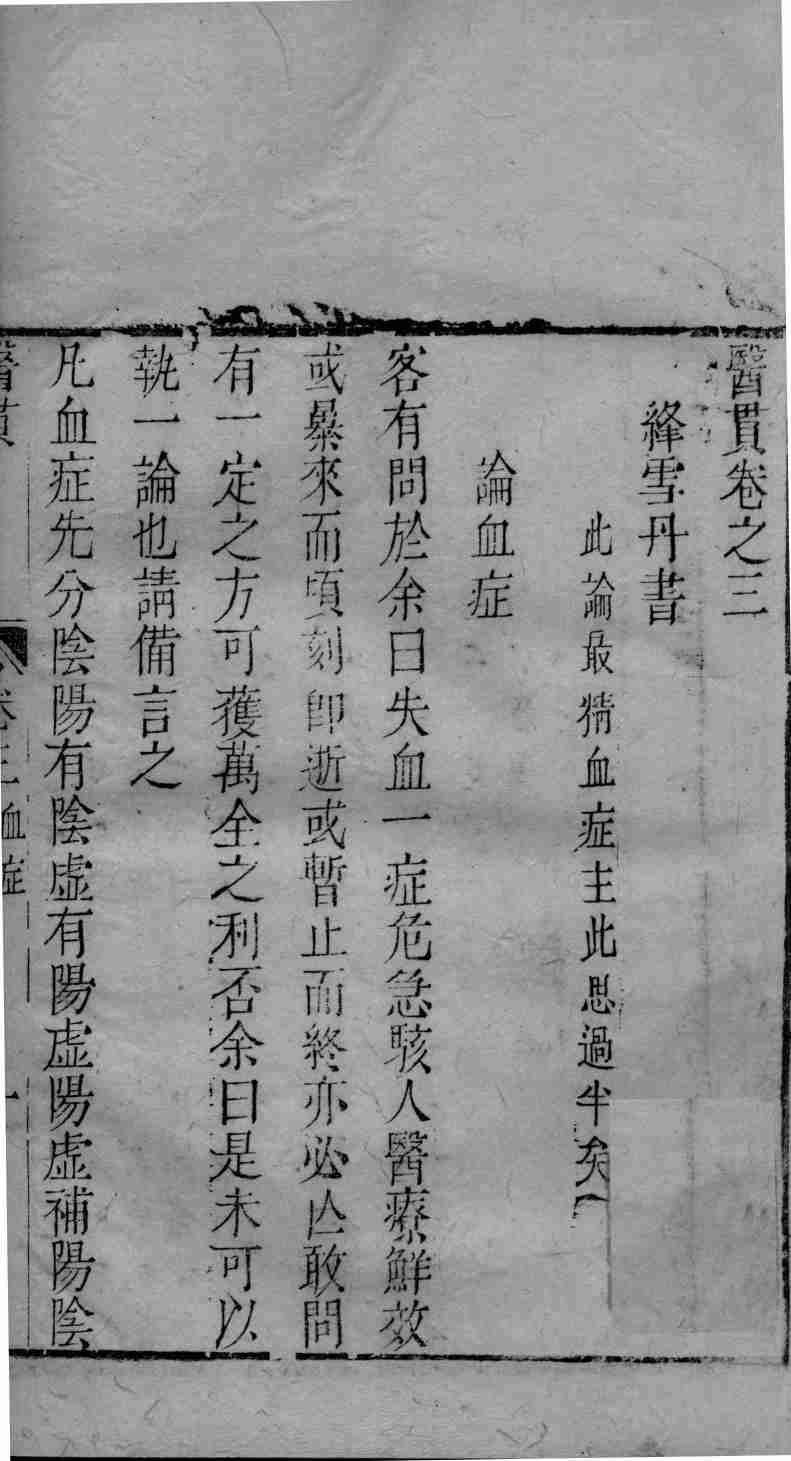 醫貫卷之三
絳雪丹書
此論最精血症主此思過半矣
論血症
客有問於余曰失血一症危急駭人醫療鮮效
或暴來而頃刻卽逝或暫止而終亦必亡敢問
有一定之方可獲萬全之利否余曰是未可以
執一論也請備言之
凡血症先分陰陽有陰虛有陽虛陽虛補陽陰
醫貫
卷三血症
一